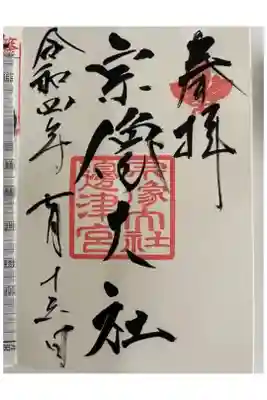 奉拝
宗像大社
宗像大社
邊津宮
令和四年 月十日